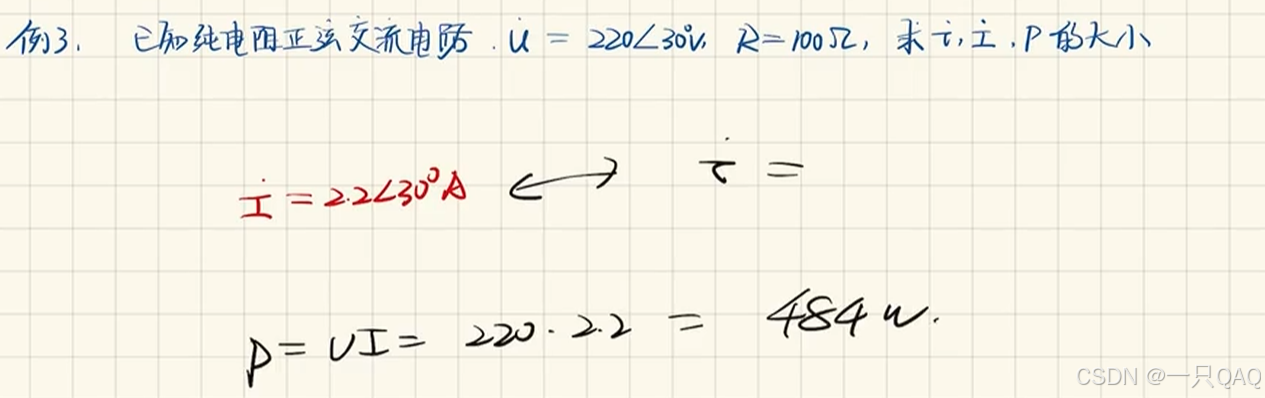 例3. 已知纯电阻正弦交流电路. U̇ = 220∠30°V, R=100Ω, 求 i, İ, P 的大小
İ = 2.2∠30°A ⟷ i =
P = UI = 220·2.2 = 484 w.
CSDN @一只QAQ